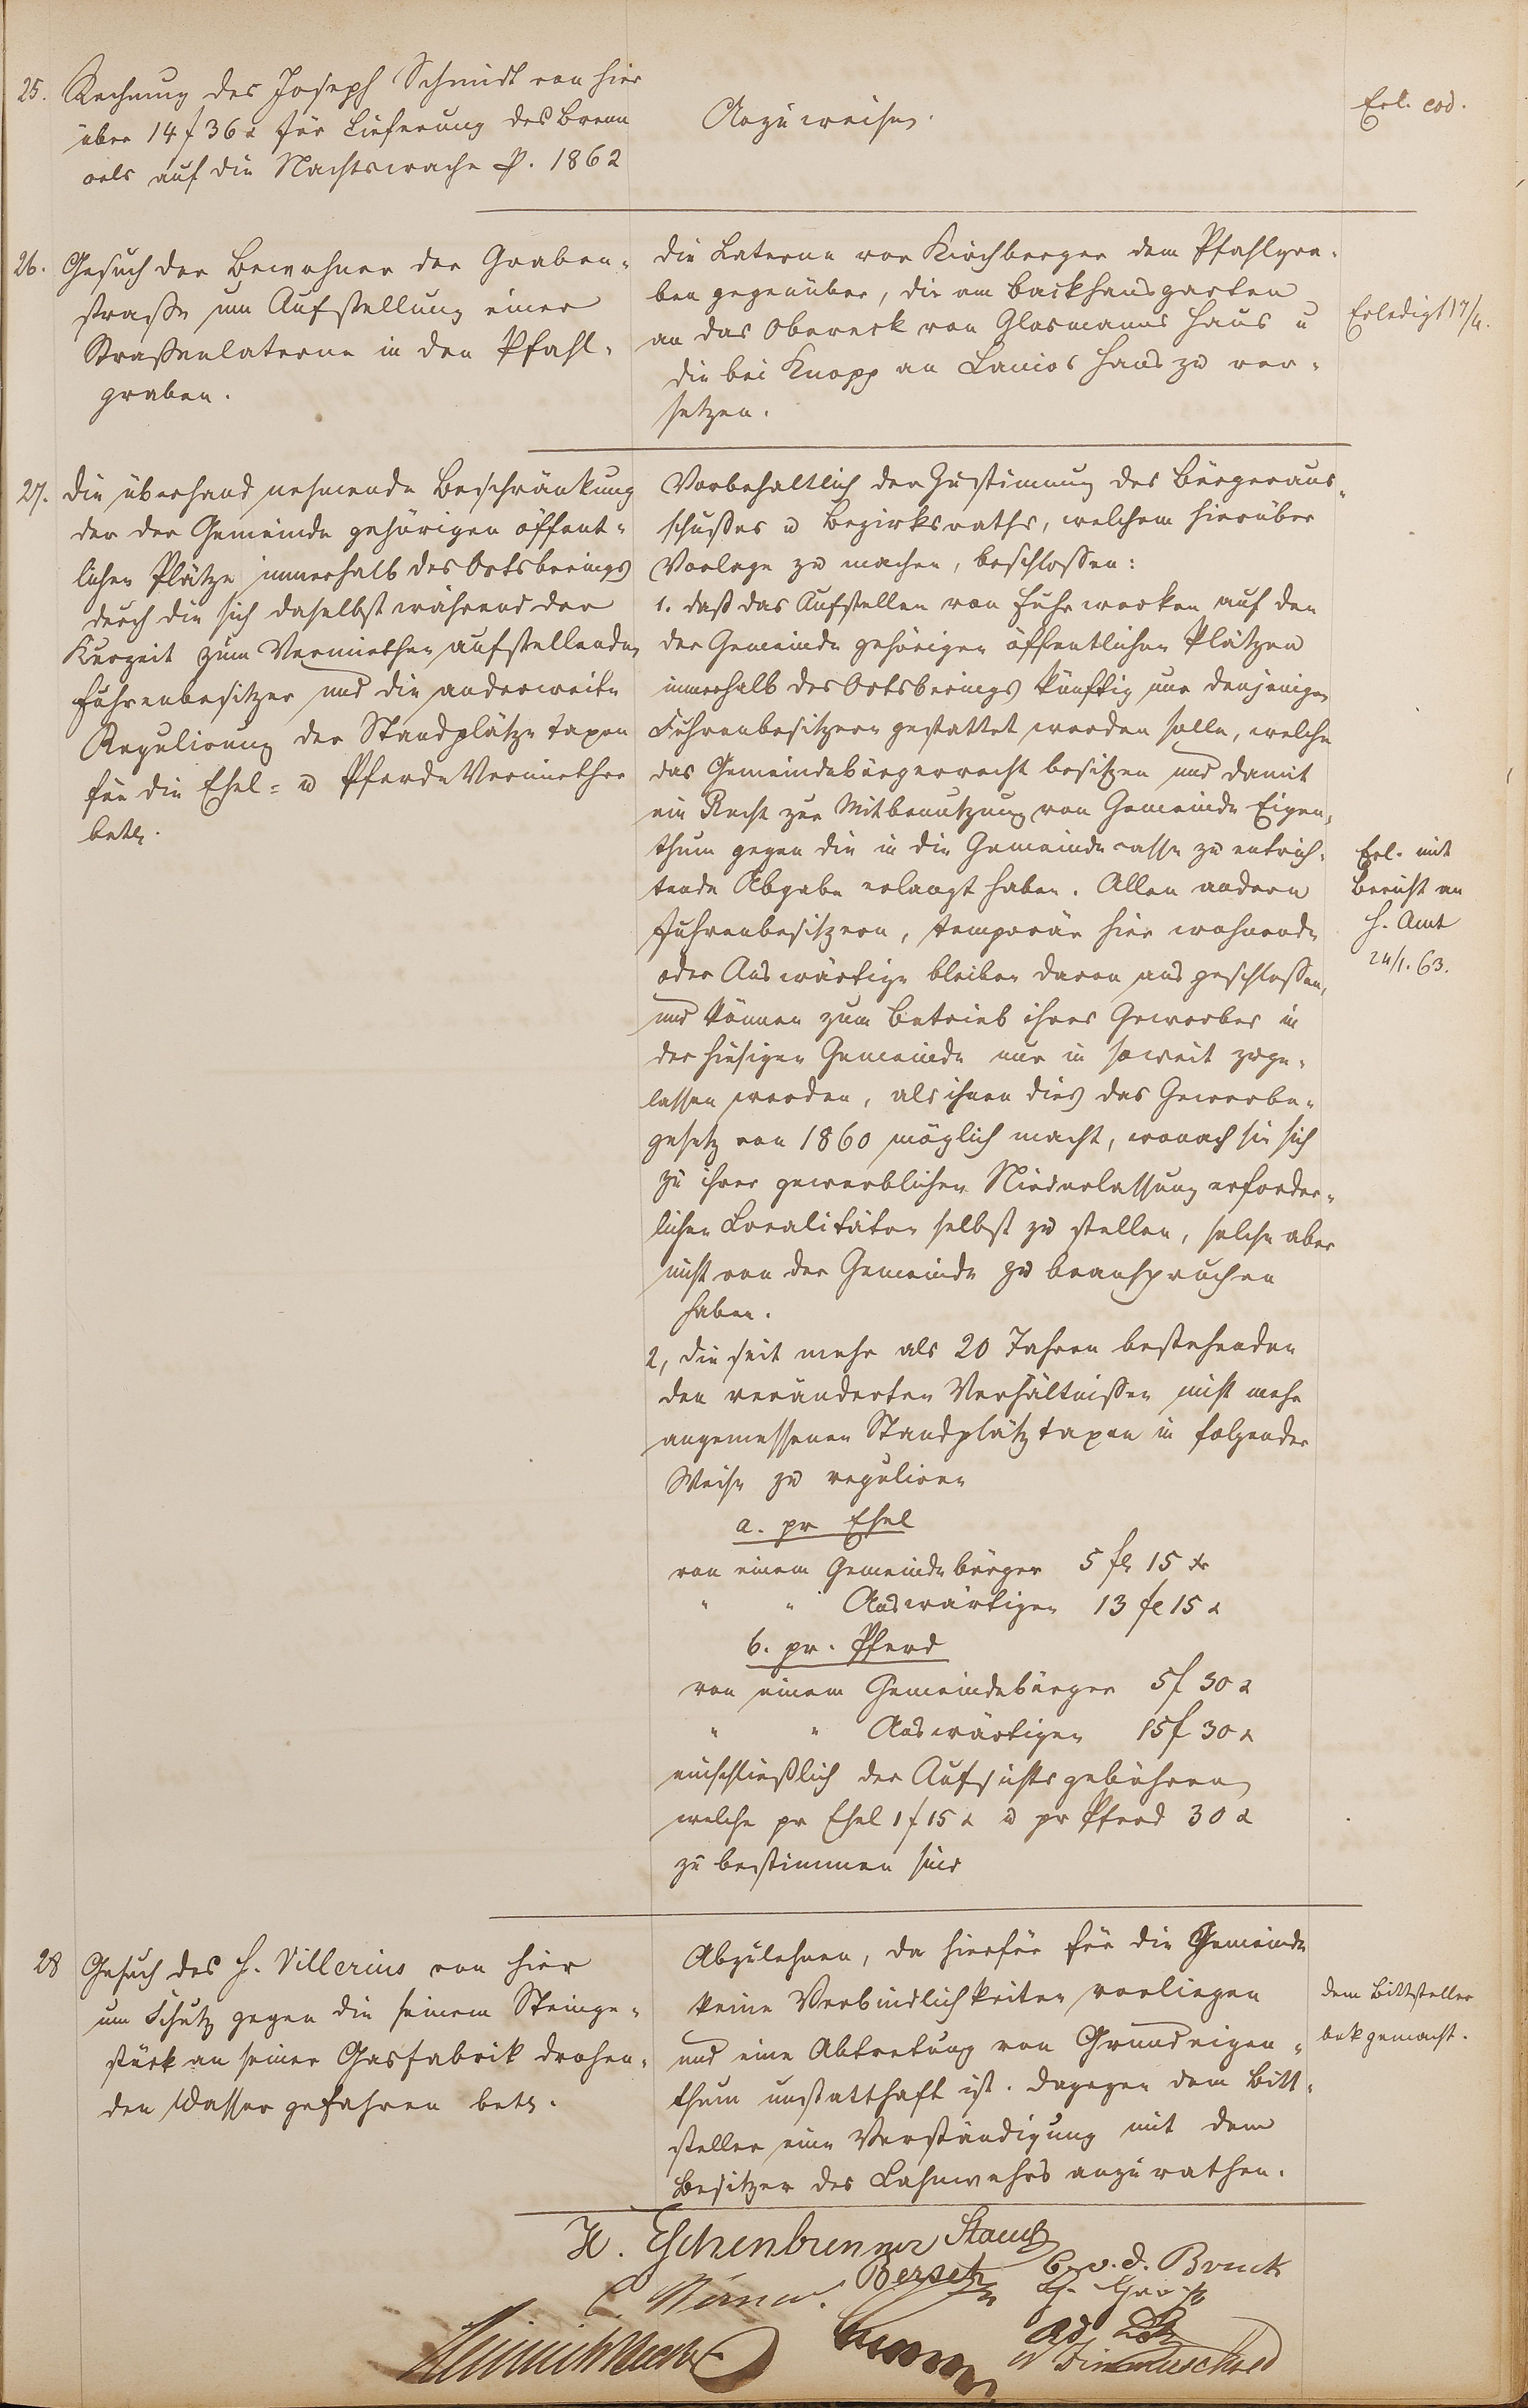 25. Rechnung des Joseph Schmidt von hier
über 14 f 36 x für Lieferung des Brenn
oels auf die Nachtswache p. 1862
Anzuweisen.
Erl. eod.
26. Gesuch der Bewohner der Graben-
straße um Aufstellung einer
Straßenlaterne in den Pfahl-
graben.
Die Laterne von Kirchberger dem Pfahlgra-
ben gegenüber, die am Backhausgarten
an das Obereck von Glasmanns Haus u
die bei Knopp an Lanios Haus zu ver-
setzen.
Erledigt 17/4.
27. Die überhand nehmende Beschränkung
der der Gemeinde gehörigen öffent-
lichen Plätze innerhalb des Ortsberings
durch die sich daselbst während der
Kurzeit zum Vermiethen aufstellenden
Fuhrenbesitzer und die anderweite
Regulirung der Standplätze taxen
für die Esel- u Pferde Vermiether
betr.
Vorbehaltlich der Zustimmung des Bürgeraus-
schußes u Bezirksraths, welchem hierüber
Vorlage zu machen, beschlossen:
1. daß das Aufstellen von Fuhrwerken auf den
der Gemeinde gehörigen öffentlichen Plätzen
innerhalb des Ortsberings künftig nur denjenigen
Fuhrenbesitzern gestattet werden solle, welche
das Gemeindebürgerrecht besitzen und damit
ein Recht zur Mitbenutzung von Gemeinde Eigen-
thum gegen die in die Gemeindecasse zu entrich-
tende Abgabe erlangt haben. Allen andern
Fuhrenbesitzern, temporär hier wohnende
oder Auswärtige bleiben davon ausgeschlossen,
und können zum Betrieb ihres Gewerbes in
der hiesigen Gemeinde nur in soweit zuge-
lassen werden, als ihnen dies das Gewerbe-
gesetz von 1860 möglich macht, wonach sie sich
zu ihrer gewerblichen Niederlassung erforder-
lichen Localitäten selbst zu stellen, solche aber
nicht von der Gemeinde zu beanspruchen
haben.
2, die seit mehr als 20 Jahren bestehenden
den veränderten Verhältnißen nicht mehr
angemessenen Standplätztaxen in folgender
Weise zu reguliren
a. pr Esel
von einem Gemeindebürger 5 fl 15 xr
" " Auswärtigen 13 fl 15 x
b. pr. Pferd
von einem Gemeindebürger 5 f 30 x
" " Auswärtigen 15 f 30 x
einschließlich der Aufsichtsgebühren
welche pr Esel 1 f 15 x u pr Pferd 30 x
zu bestimmen sind
Erl. mit
Bericht an
H. Amt
24/1. 63.
28 Gesuch des H. Villerius von hier
um Schutz gegen die seinem Steinge-
stück an seiner Gasfabrik drohen-
den Wassergefahren betr.
Abzulehnen, da hierfür für die Gemeinde
keine Verbindlichkeiten vorliegen
und eine Abtretung von Grundeigen-
thum unstatthaft ist. Dagegen dem Bitt-
steller eine Verständigung mit dem
Besitzer des Lahnwehrs anzurathen.
dem Bittsteller
bek gemacht.
H. Eschenbrenner Stauch
Berset C. v. d. Bruck